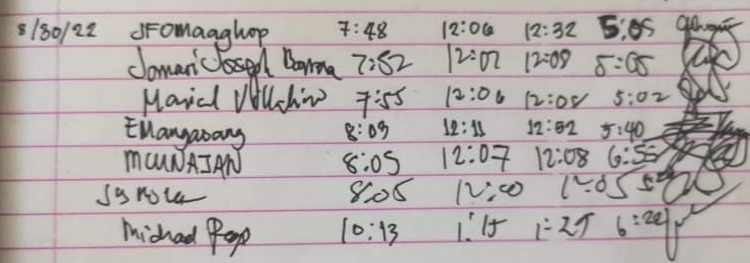 8/30/22 JFOMaaghop 7:48 12:06 12:32 5:05
Jomari Joseph 7:52 12:07 12:09 5:05
Maricel 7:55 12:06 12:08 5:02
EMangasang 8:09 12:11 12:52 5:40
MCUNAJAN 8:05 12:07 12:08 6:55
8:05 12:00 12:05
Michael 10:13 1:15 1:25 6:22